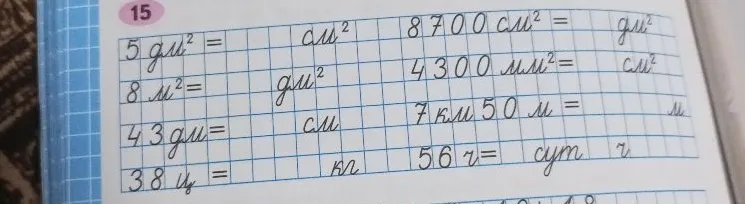 15
5 дм² = см² 8700 см² = дм²
8 м² = дм² 4300 мм² = см²
43 дм = см 7 км 50 м = м
38 ц = кг 56 ч = сут ч